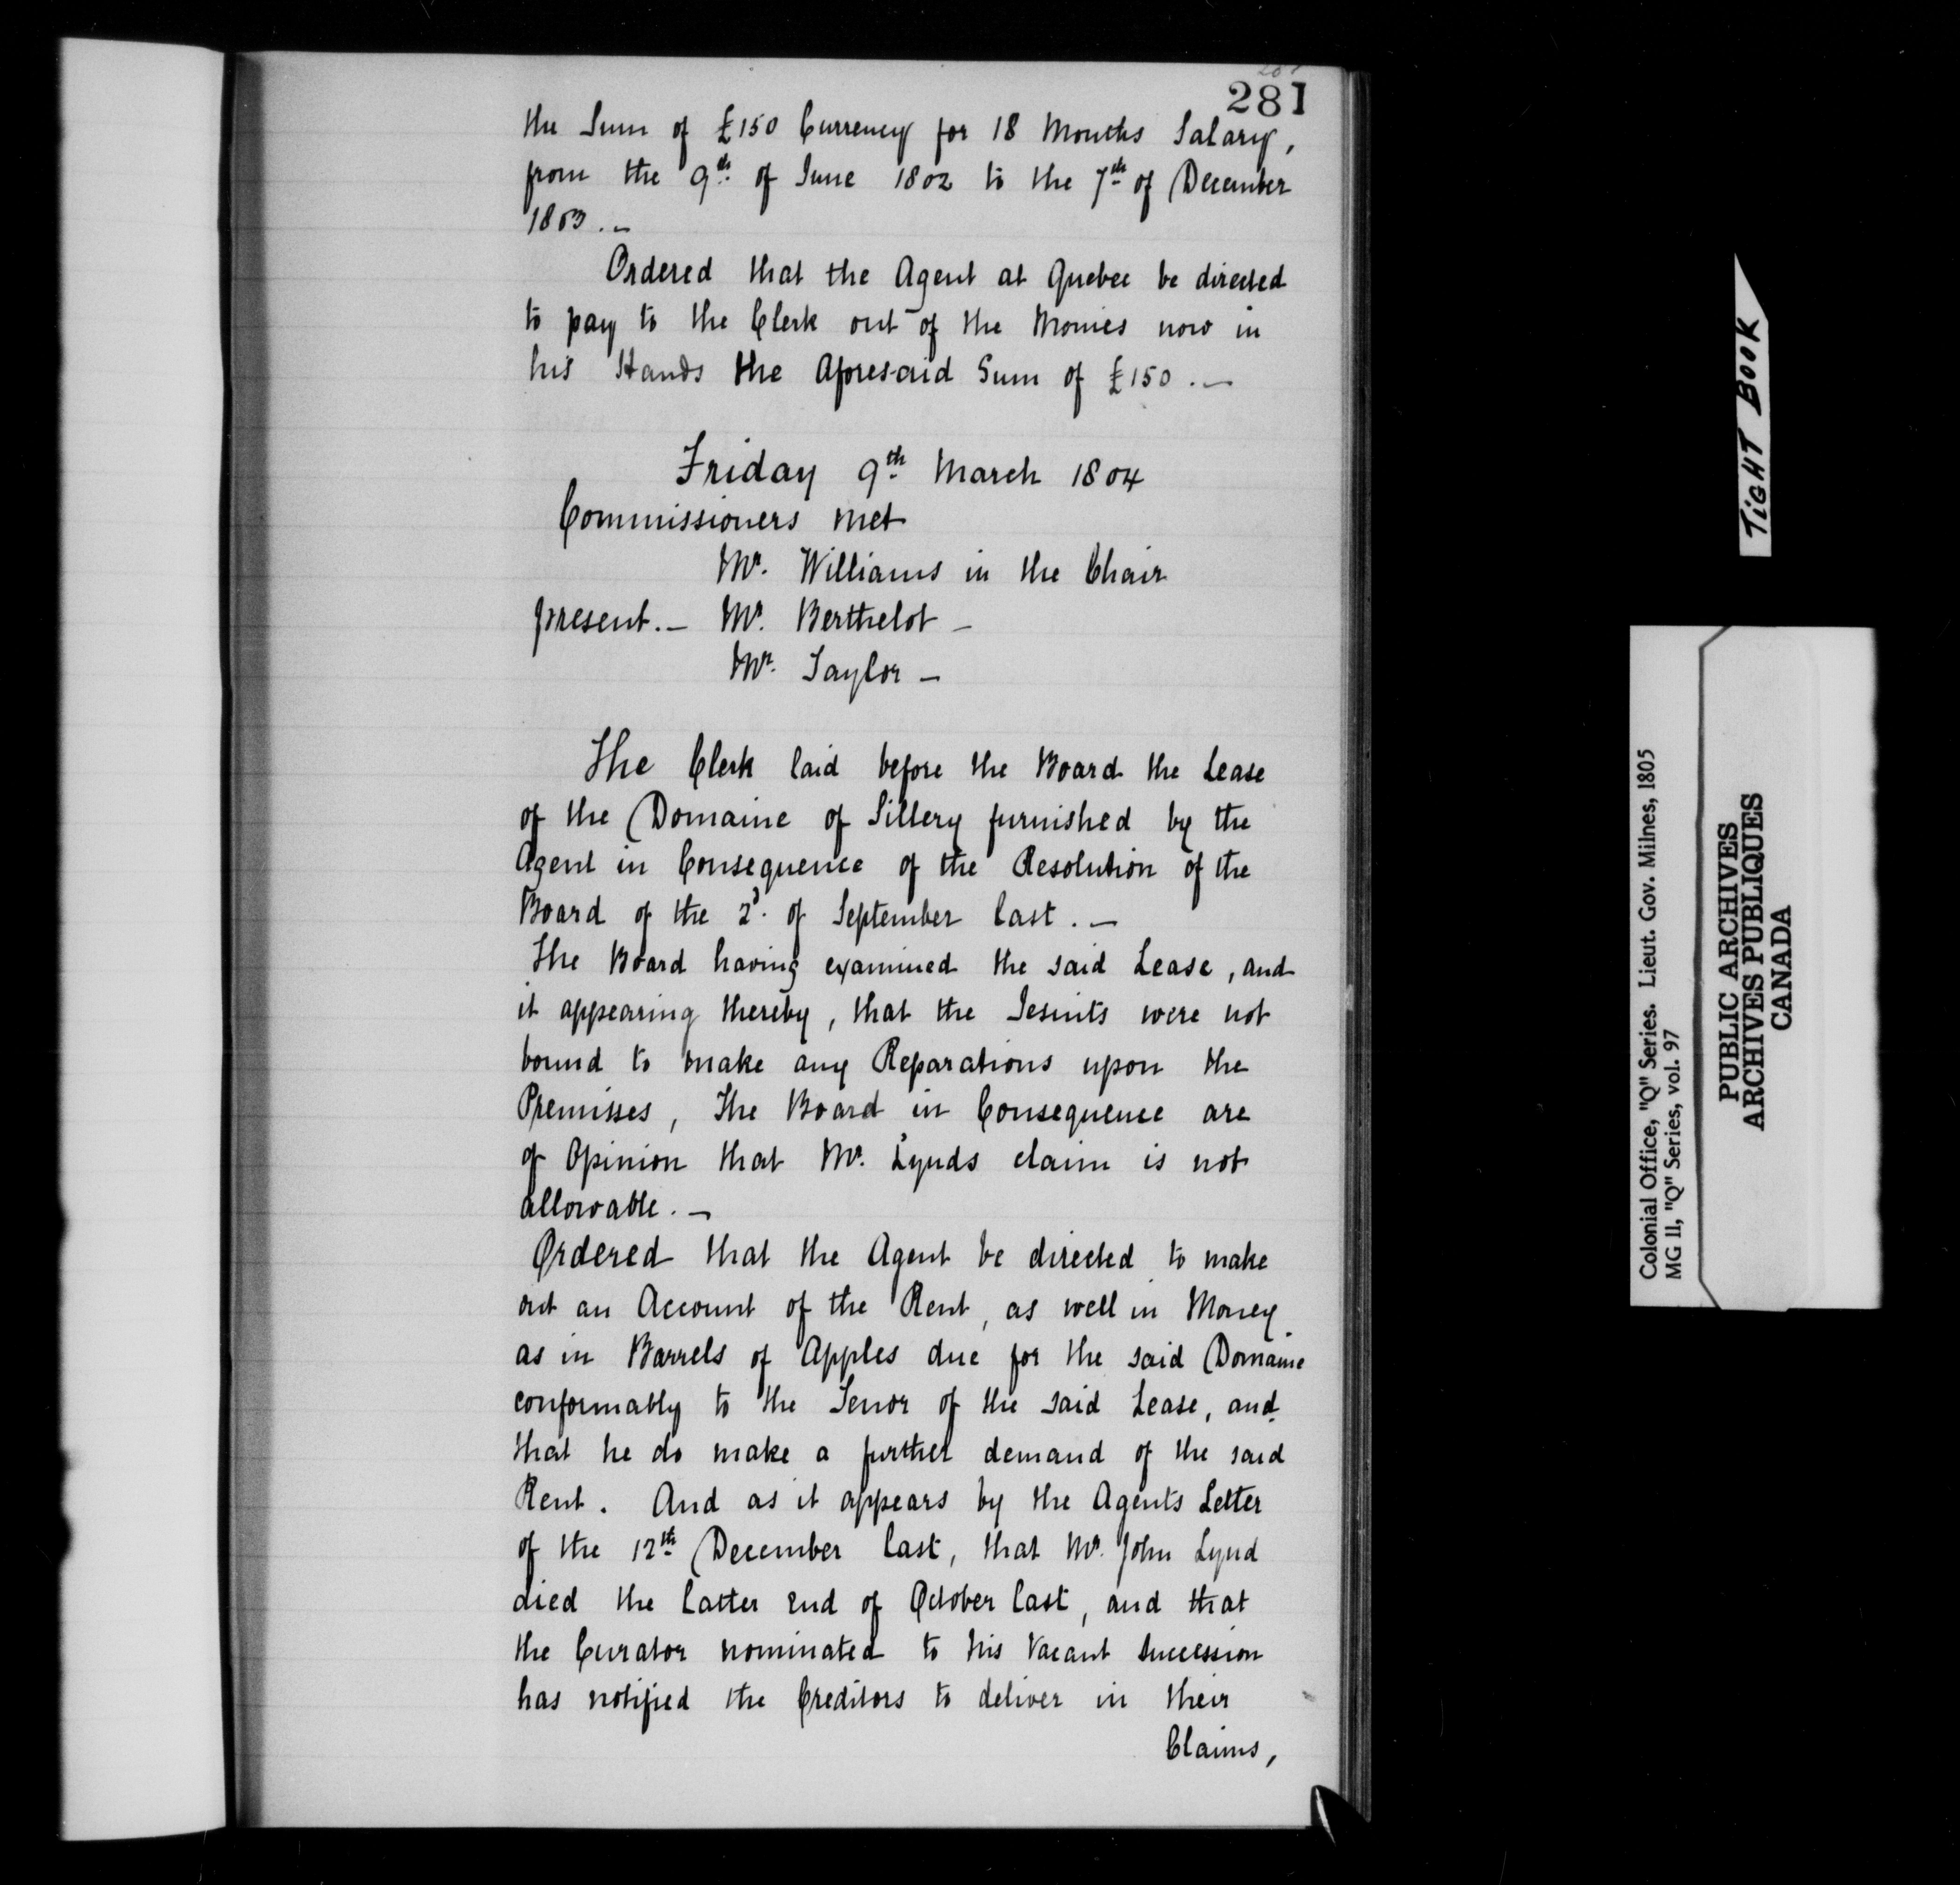 281
the Sum of £150 Currency for 18 Months Salary,
from the 9th of June 1802 to the 7th of December
1803.—
Ordered that the Agent at Quebec be directed
to pay to the Clerk out of the Monies now in
his Hands the Aforesaid Sum of £150.—
Friday 9th March 1804
Commissioners met
Mr. Williams in the Chair
present.— Mr. Berthelot —
Mr. Taylor —
The Clerk laid before the Board the Lease
of the Domaine of Sillery furnished by the
Agent in Consequence of the Resolution of the
Board of the 2d. of September last.—
The Board having examined the said Lease, and
it appearing thereby, that the Jesuits were not
bound to make any Reparations upon the
Premisses, The Board in Consequence are
of Opinion that Mr. Lynd's claim is not
allowable.—
Ordered that the Agent be directed to make
out an Account of the Rent, as well in Money
as in Barrels of Apples due for the said Domaine
conformably to the Tenor of the said Lease, and
that he do make a further demand of the said
Rent. And as it appears by the Agents Letter
of the 12th December last, that Mr. John Lynd
died the latter end of October last, and that
the Curator nominated to his Vacant Succession
has notified the Creditors to deliver in their
Claims,
TiGHT BOOK
Colonial Office, "Q" Series. Lieut. Gov. Milnes, 1805
MG 11, "Q" Series, vol. 97
PUBLIC ARCHIVES
ARCHIVES PUBLIQUES
CANADA